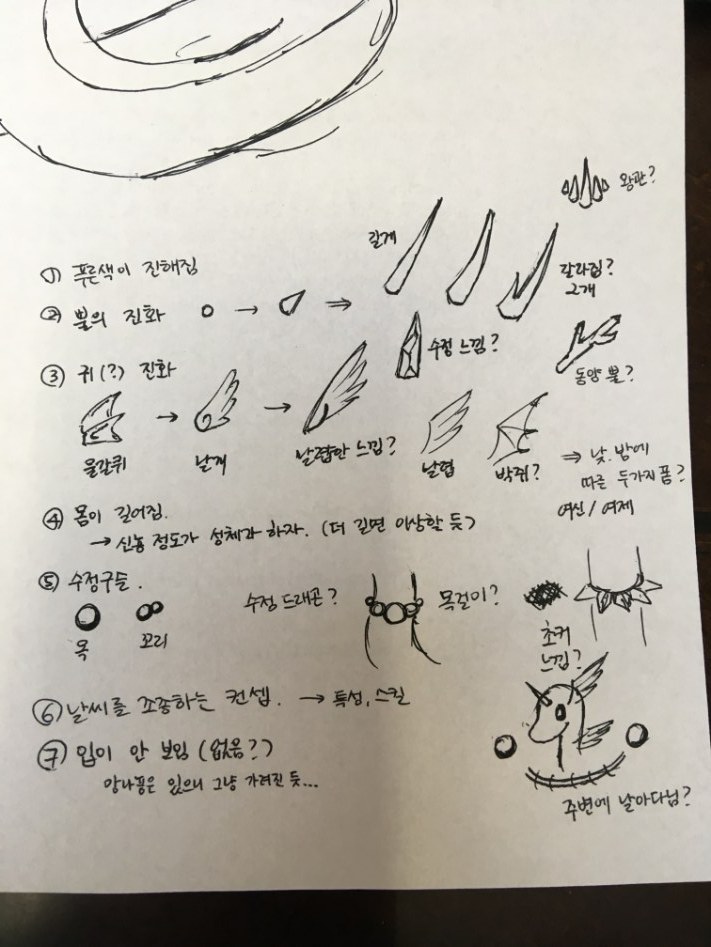 왕관?
길게
① 푸른색이 진해짐
갈라짐?
2개
② 뿔의 진화
수정 느낌?
동양 뿔?
③ 귀(?) 진화
물갈퀴
날개
날렵한 느낌?
날렵
박쥐?
⇒ 낮.밤에
따른 두가지 폼?
여신 / 여제
④ 몸이 길어짐.
→ 신뇽 정도가 성체라 하자. (더 길면 이상할 듯)
⑤ 수정구들.
수정 드래곤?
목걸이?
목
꼬리
초커
느낌?
⑥ 날씨를 조종하는 컨셉. → 특성, 스킬
⑦ 입이 안 보임 (없음?)
망나뇽은 있으니 그냥 가려진 듯...
주변에 날아다님?